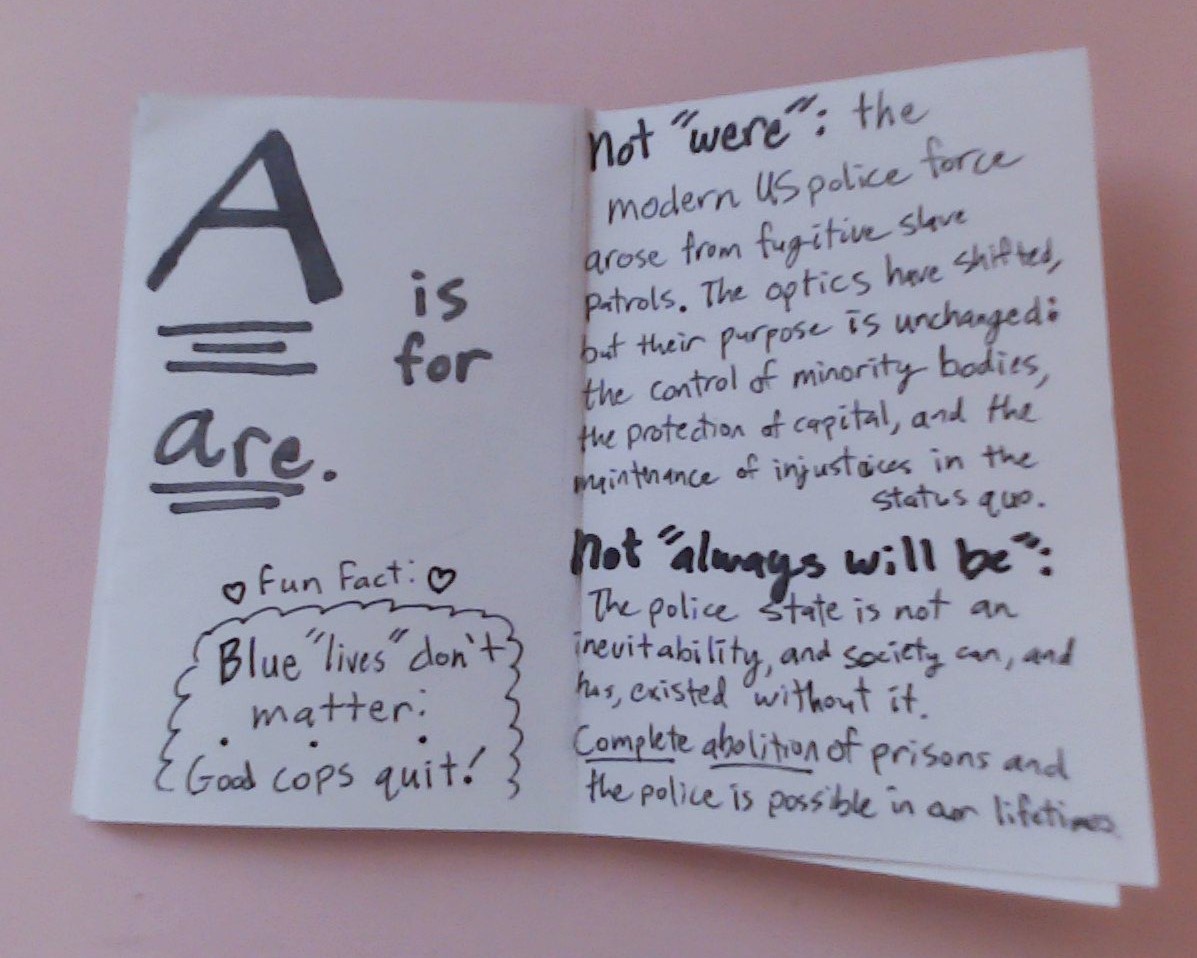 A
is
for
are.
♡ Fun Fact: ♡
Blue "lives" don't
matter:
Good cops quit!
not "were": the
modern US police force
arose from fugitive slave
patrols. The optics have shifted,
but their purpose is unchanged:
the control of minority bodies,
the protection of capital, and the
maintenance of injustices in the
status quo.
not "always will be":
The police state is not an
inevitability, and society can, and
has, existed without it.
Complete abolition of prisons and
the police is possible in our lifetimes